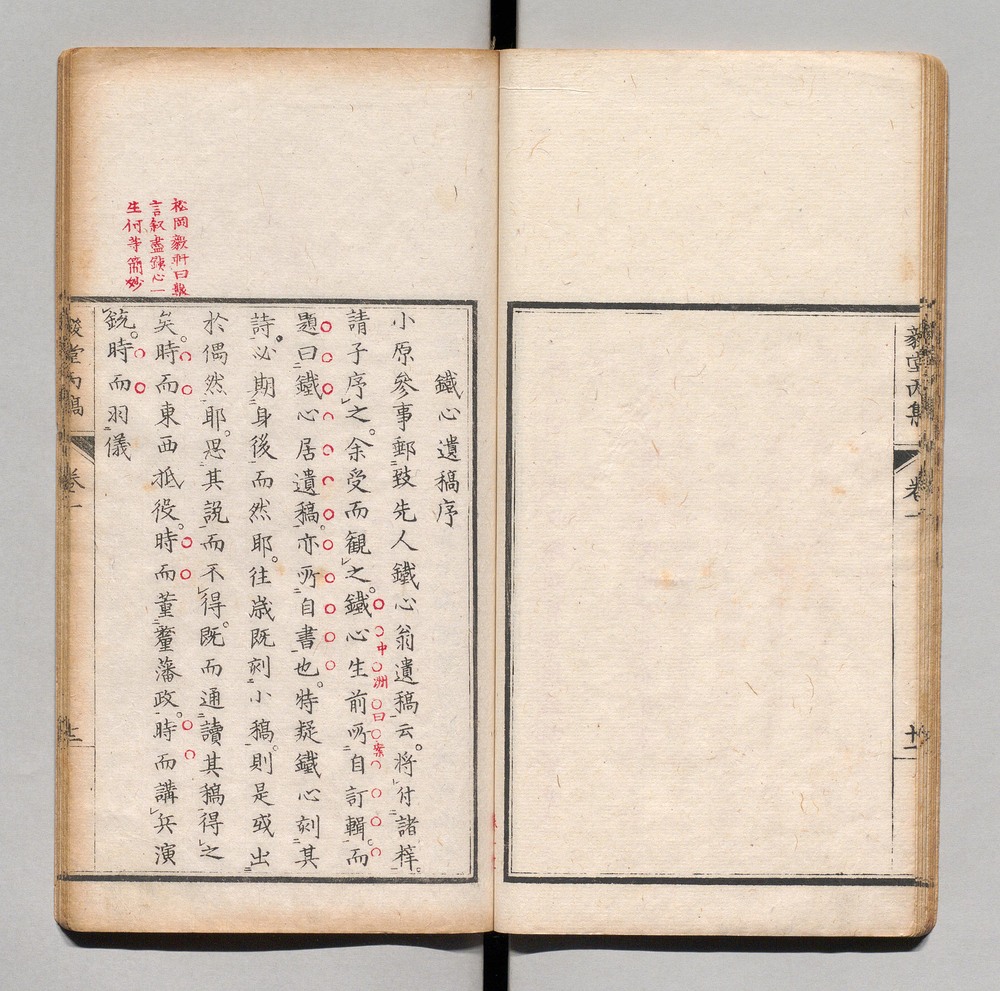 毅堂丙集
卷一
十二
松岡毅軒曰數
言叙盡鐵心一
生何等簡妙
鐵心遺稿序
小原參事郵致先人鐵心翁遺稿云。將付諸梓。
請予序之。余受而観之。鐵心生前所自訂輯。而
中洲曰案
題曰鐵心居遺稿。亦所自書也。特疑鐵心刻其
詩。必期身後而然耶。往歳既刻小稿。則是或出
於偶然耶。思其説而不得。既而通讀其稿得之
矣。時而東西抵役。時而董釐藩政。時而講兵演
銃。時而羽儀
毅堂丙稿
卷一
十二